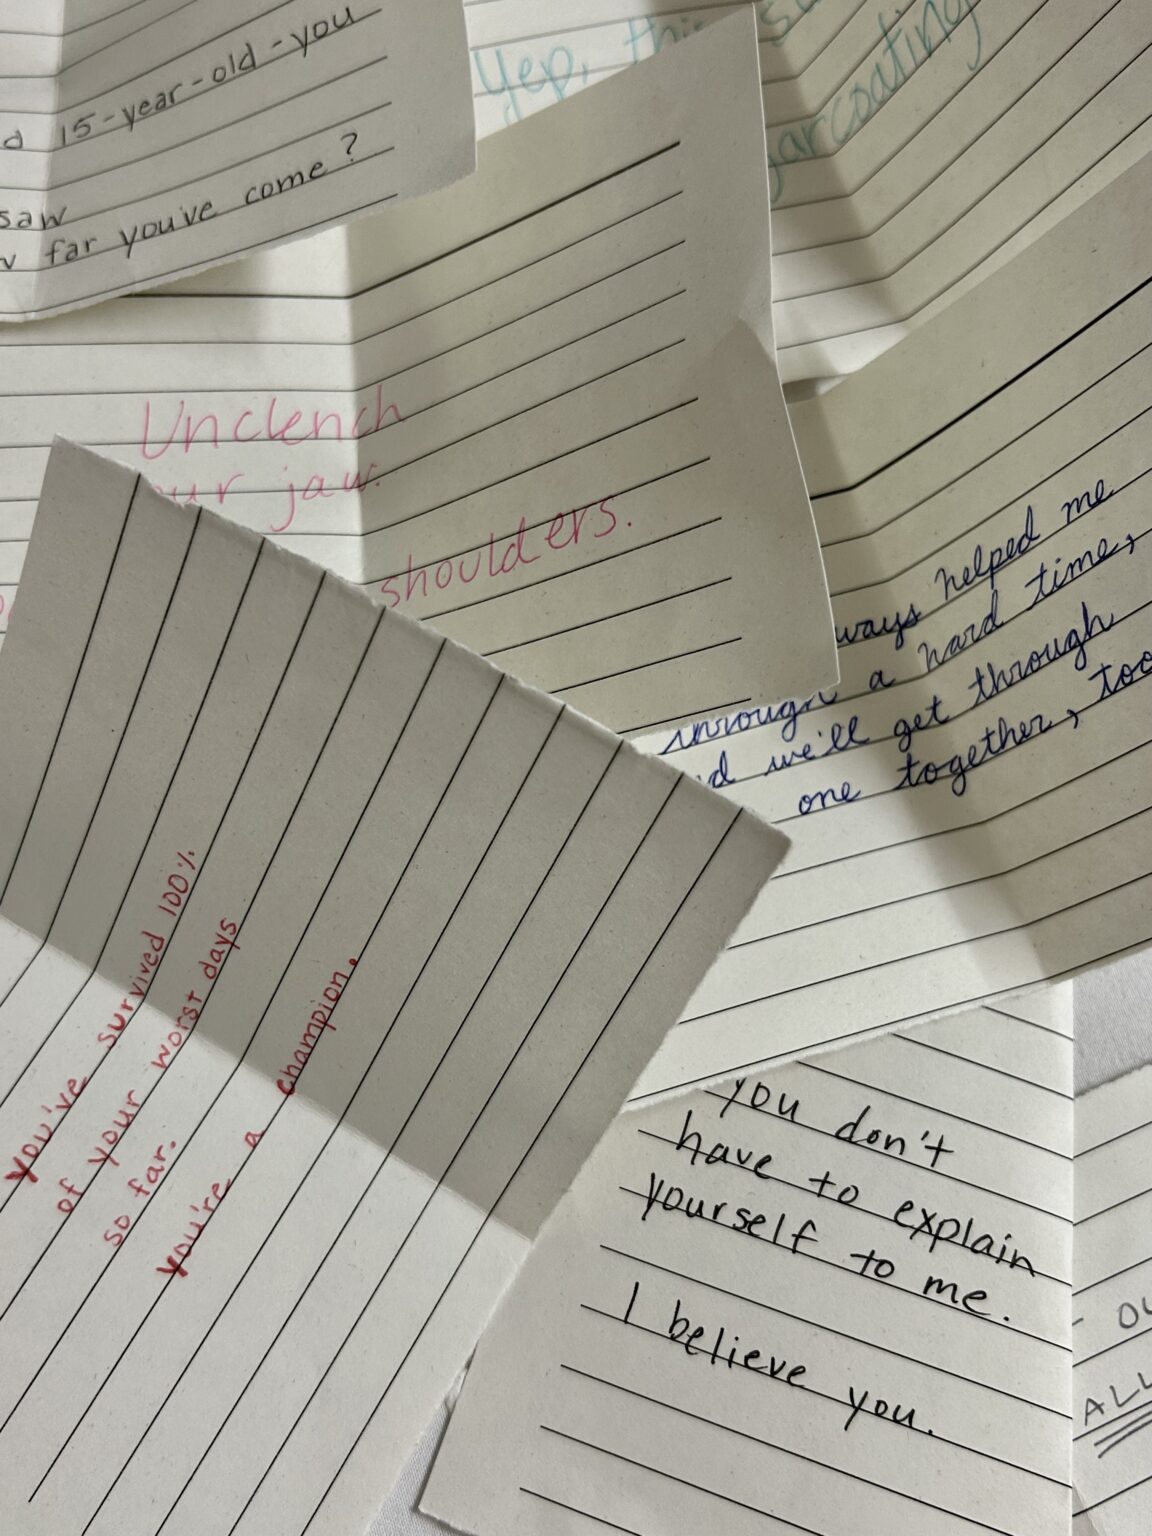 15-year-old-you
saw
far you've come?
Yep,
Unclench
jaw.
shoulders.
helped me
a hard time,
through
we'll get through
one together, too
You've survived 100%
of your worst days
so far.
You're a champion.
you don't
have to explain
yourself to me.
I believe you.